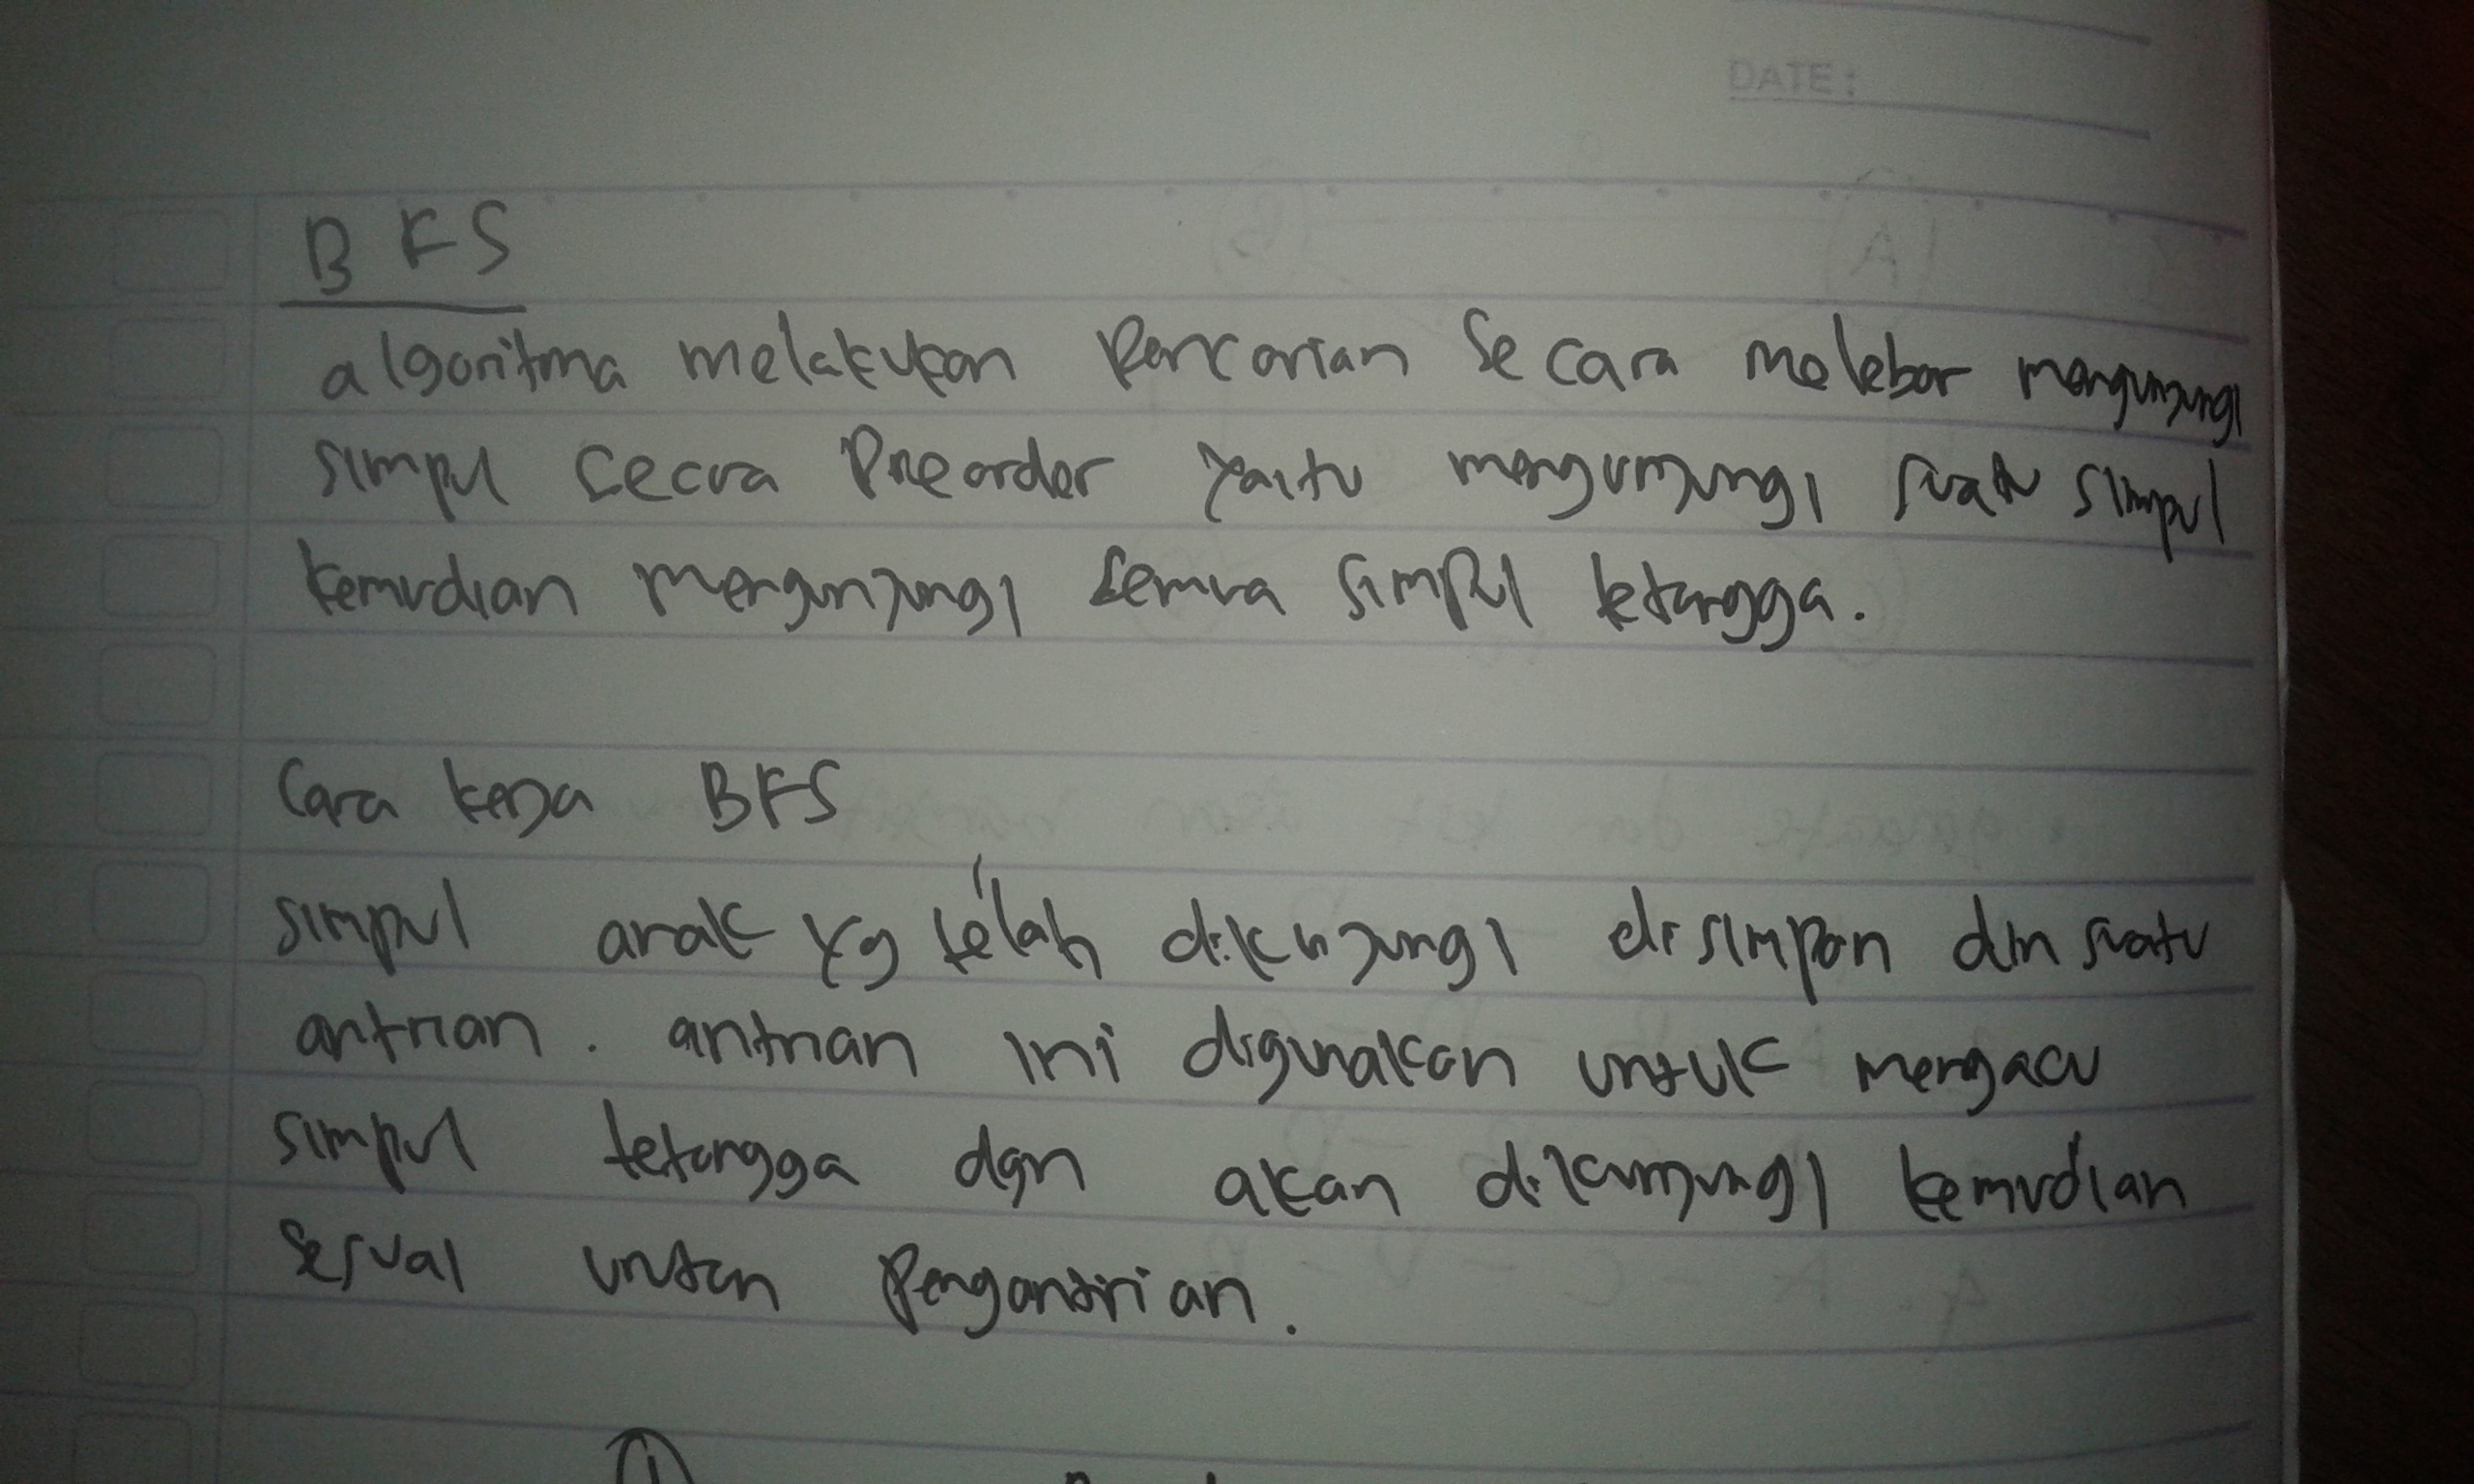 DATE:
BFS
algoritma melakukan pencarian secara melebar mengunjungi
simpul secra Preorder yaitu mengunjungi suatu simpul
kemudian mengunjungi semua simpul tetangga.
Cara kerja BFS
simpul anak yg telah dikunjungi disimpan dlm suatu
antrian. antrian ini digunakan untuk mengacu
simpul tetangga dgn akan dikunjungi kemudian
sesuai urutan Pengantrian.